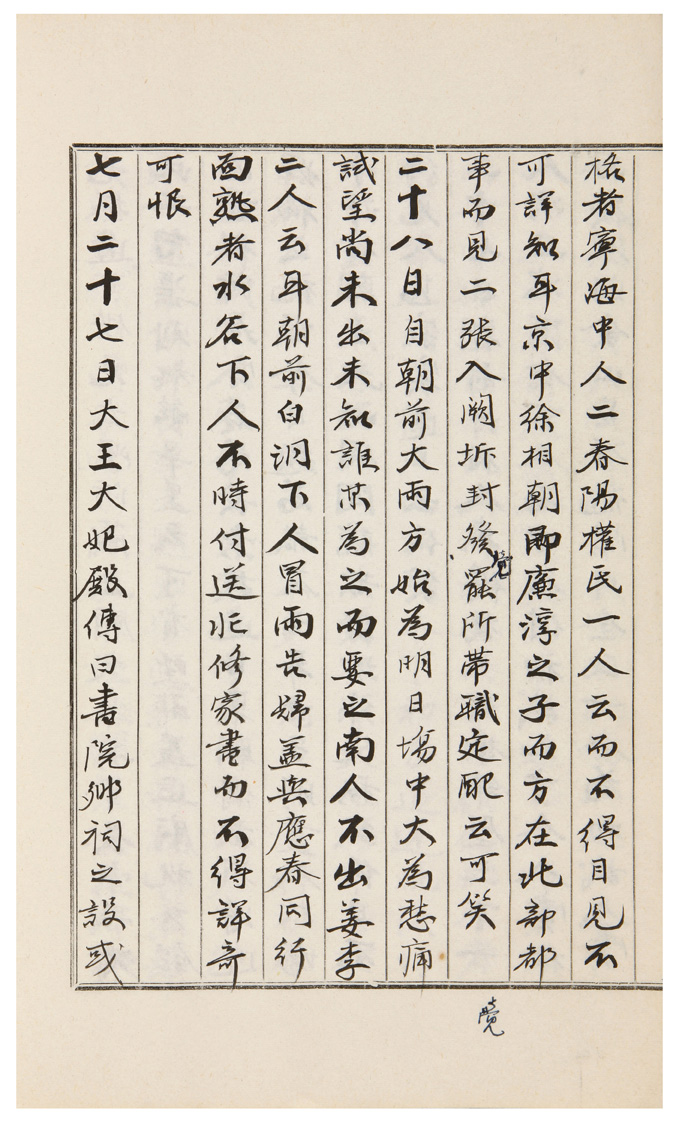 格者寧海中人二春陽權氏一人云而不得目見不
可詳知耳京中徐相朝卽廉淳之子而方在北部都
事而見二張入闕坼封發覺罷所帶職定配云可笑
二十八日自朝前大雨方始爲明日場中大爲愁痛
試望尚未出未知誰某爲之而要之南人不出姜李
二人云耳朝前白洞下人冒雨告歸盖與應春同行
面熟者水谷下人不時付送忙修家書而不得詳奇
可恨
七月二十七日大王大妃殿傳曰書院鄉祠之設或
覺